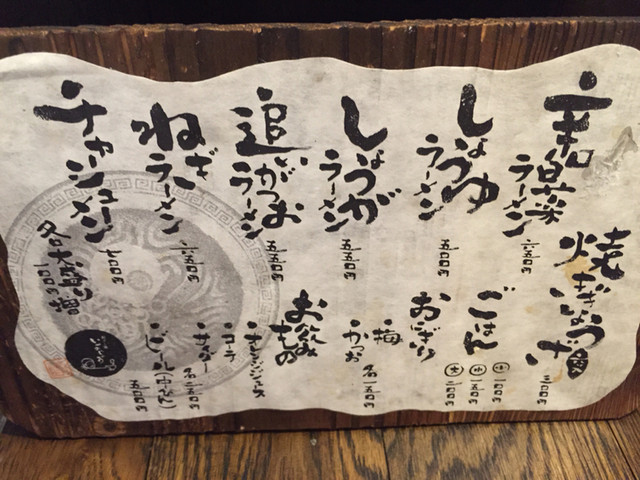 菜
ラーメン
六五〇円
焼ぎょうざ
三〇〇円
しょうゆ
ラーメン
五五〇円
ごはん
小 一〇〇円
中 一五〇円
大 二〇〇円
しょうが
ラーメン
五五〇円
おにぎり
梅
かつお
各一五〇円
追いがつお
ラーメン
五五〇円
お飲みもの
オレンジジュース
コーラ
ねぎ
ラーメン
六五〇円
ビール(中びん)
五〇〇円
チャーシューメン
七〇〇円
各大盛り